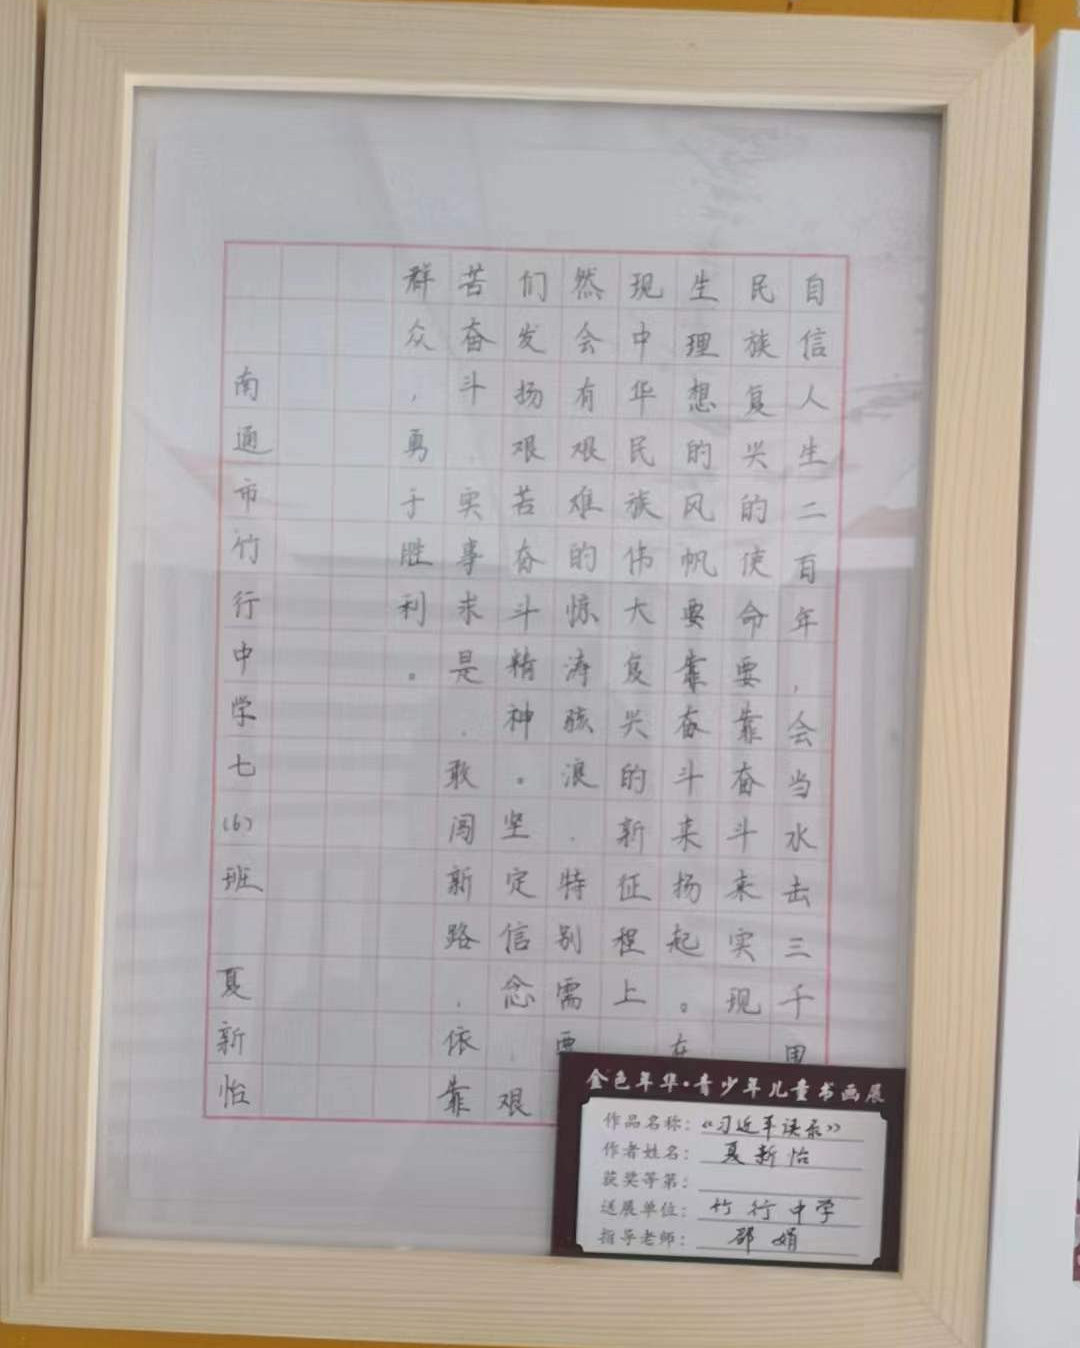 自信人生二百年，会当水击三千里
民族复兴的使命要靠奋斗来实现
生理想的风帆要靠奋斗来扬起。在
现中华民族伟大复兴的新征程上
然会有艰难的惊涛骇浪，特别需要
们发扬艰苦奋斗精神。坚定信念，艰
苦奋斗，实事求是，敢闯新路，依靠
群众，勇于胜利。
南通市竹行中学七(6)班 夏新怡
金色年华·青少年儿童书画展
作品名称：《习近平语录》
作者姓名：夏新怡
获奖等第：
送展单位：竹行中学
指导老师：邵娟